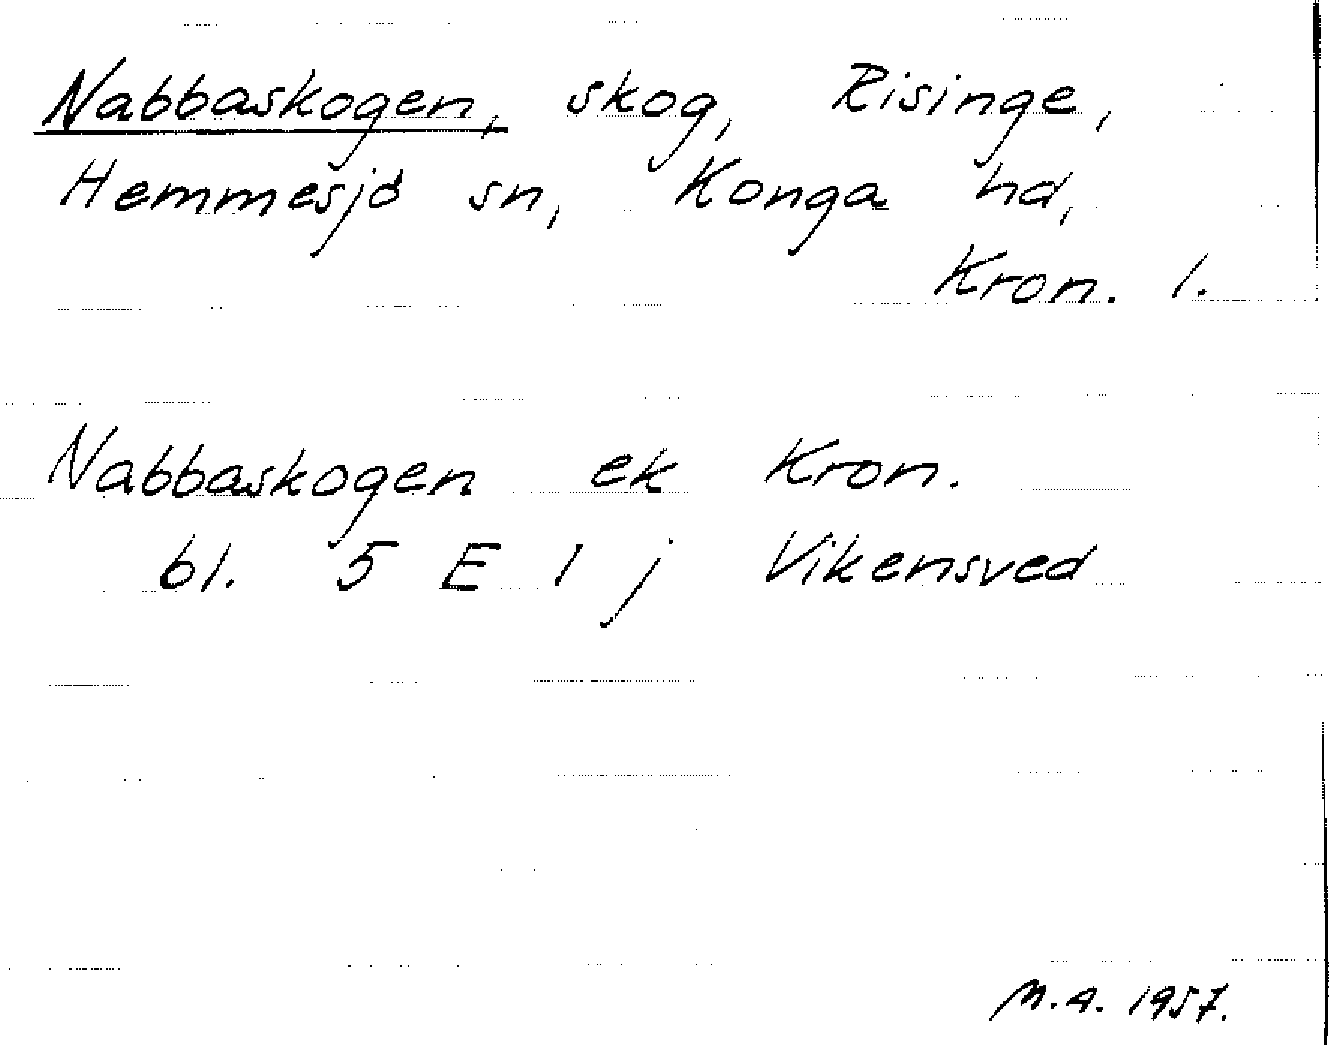 Nabbaskogen, skog, Risinge,
Hemmesjö sn, Konga hd,
Kron. l.
Nabbaskogen ek Kron.
bl. 5 E 1 j Vikensved
M.A. 1957.